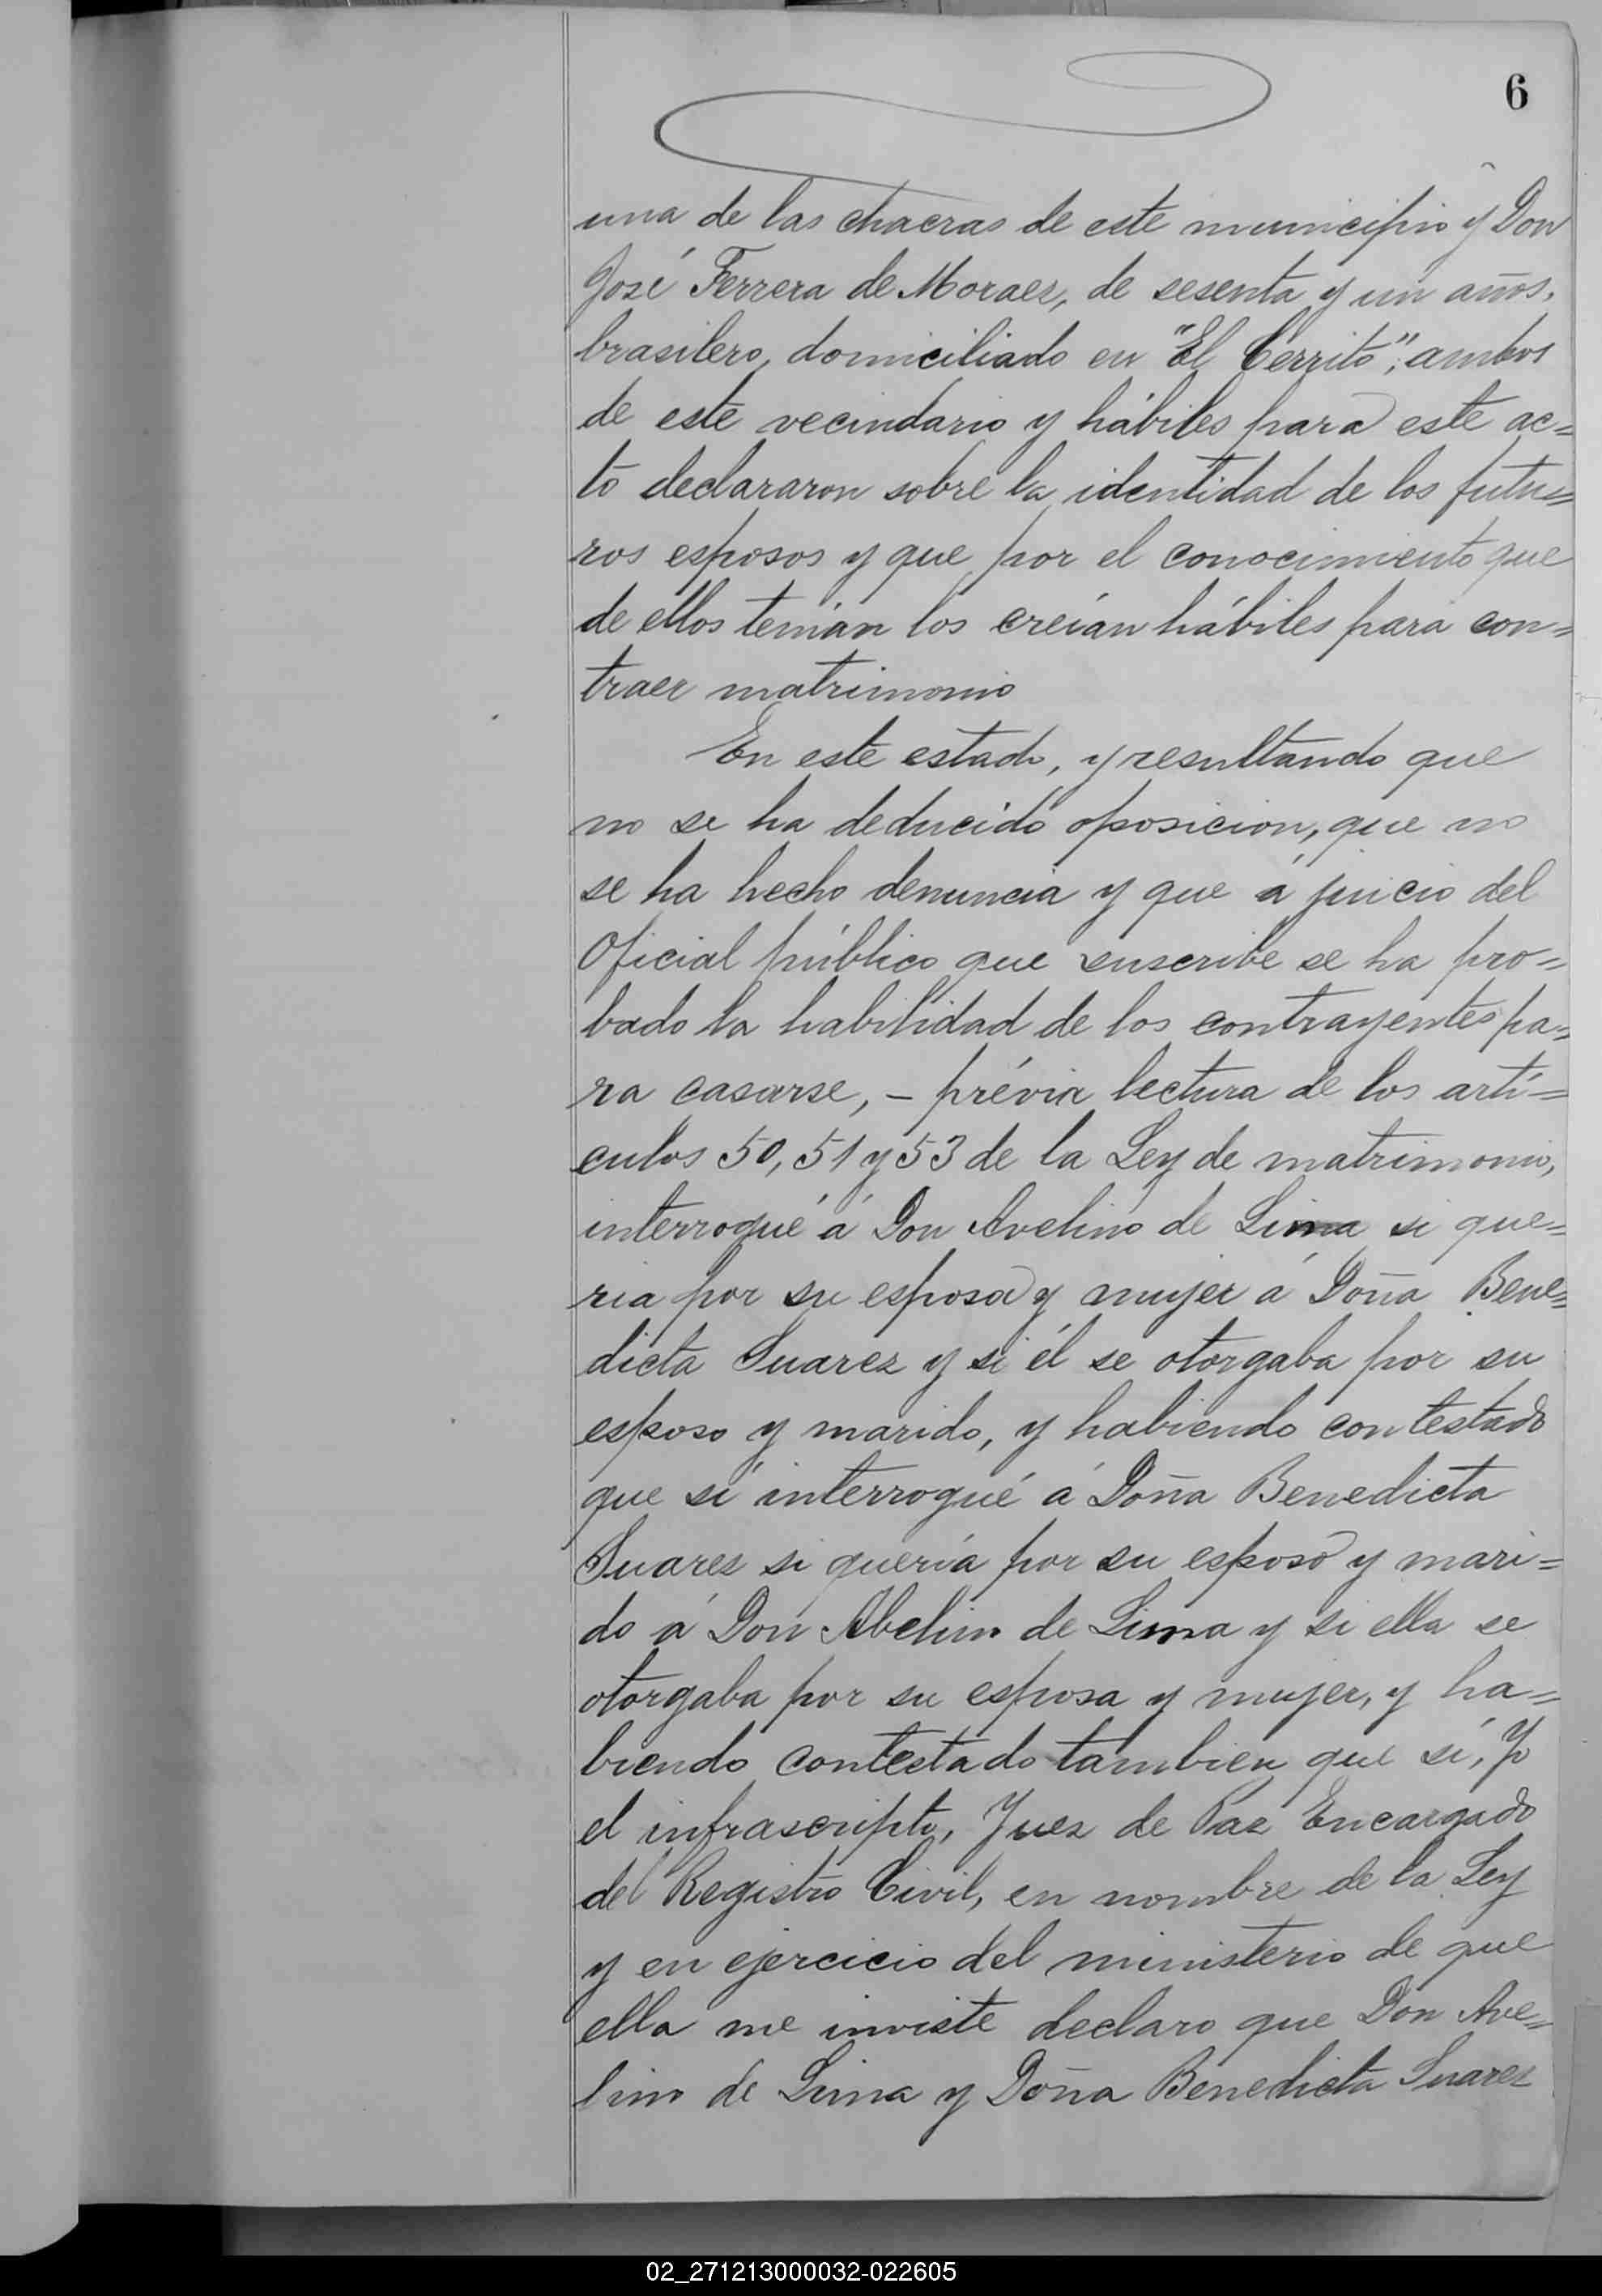 6
una de las chacras de este municipio y Don
José Ferrera de Moraes, de sesenta y un años,
brasilero, domiciliado en "El Cerrito", ambos
de este vecindario y hábiles para este ac=
to declararon sobre la identidad de los futu=
ros esposos y que por el conocimiento que
de ellos tenían los creían hábiles para con=
traer matrimonio
En este estado, y resultando que
no se ha deducido oposicion, que no
se ha hecho denuncia y que á juicio del
Oficial público que suscribe se ha pro=
bado la habilidad de los contrayentes pa=
ra casarse, – prévia lectura de los artí=
culos 50, 51 y 53 de la Ley de matrimonio,
interrogué á Don Avelino de Lima si que=
ria por su esposa y mujer á Doña Bene=
dicta Suarez y si él se otorgaba por su
esposo y marido, y habiendo contestado
que sí interrogué á Doña Benedicta
Suarez si quería por su esposo y mari=
do á Don Abelino de Lima y si ella se
otorgaba por su esposa y mujer, y ha=
biendo contestado tambien que sí, Yo
el infrascripto, Juez de Paz Encargado
del Registro Civil, en nombre de la Ley
y en ejercicio del ministerio de que
ella me inviste declaro que Don Ave=
lino de Lima y Doña Benedicta Suarez
02_271213000032-022605